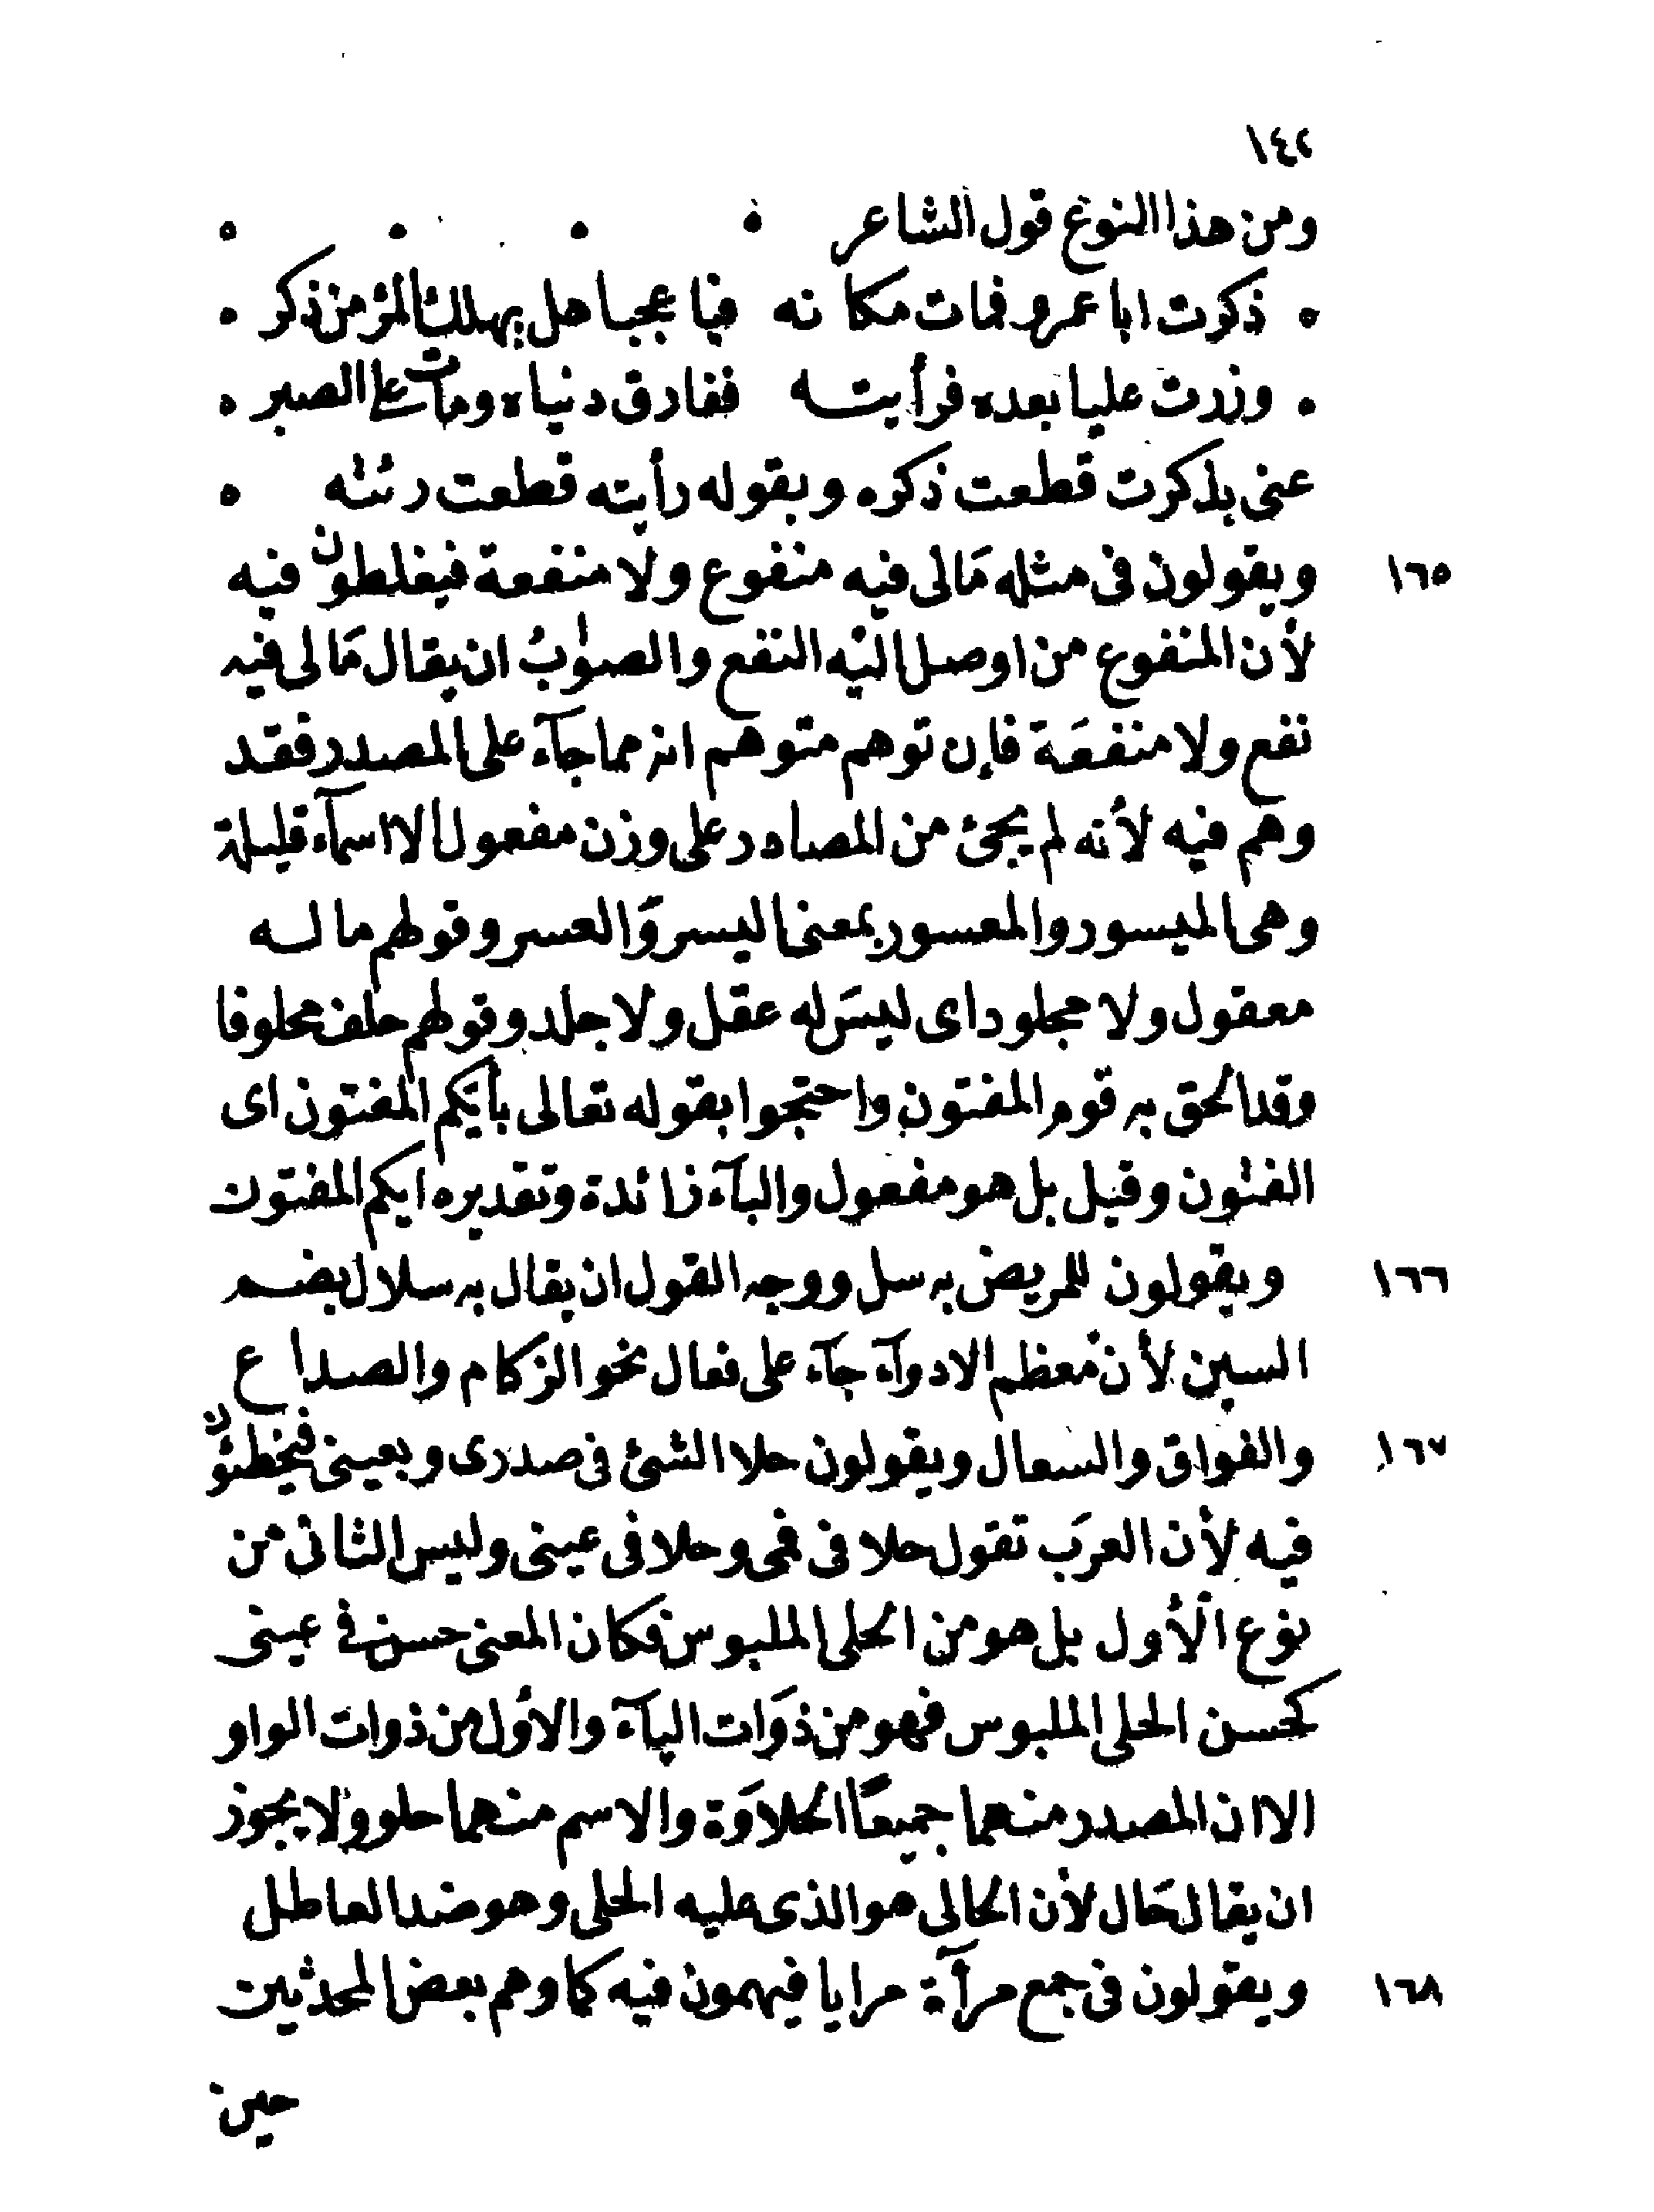 ١٤٢
ومن هذا النوع قول الشاعر
ذكرت ابا عمرو فمات مكانه فيا عجبا هل يهلك المرء من ذكر
وزرت عليا بعده فرأيته ففارق دنياه ومات على الصبر
عنى بذكرت قطعت ذكره وبقوله رأيته قطعت رئته
١٦٥ ويقولون فى مثله مالى فيه منفوع ولا منفعة فيغلطون فيه
لأن المنفوع من اوصل اليه النفع والصواب ان يقال مالى فيه
نفع ولا منفعة فإن توهم متوهم انه مما جآء على المصدر فقد
وهم فيه لأنه لم يجئ من المصادر على وزن مفعول الا اسمآء قليلة
وهى الميسور والمعسور بمعنى اليسر والعسر وقولهم ما له
معقول ولا مجلود اى ليس له عقل ولا جلد وقولهم حلف محلوفا
وقد الحق به قوم المفتون واحتجوا بقوله تعالى بأيكم المفتون اى
الفتون وقيل بل هو مفعول والبآء زائدة وتقديره ايكم المفتون
١٦٦ ويقولون للمريض به سل ووجه القول ان يقال به سلال بضم
السين لأن معظم الادوآء جآء على فعال نحو الزكام والصداع
١٦٧ والفواق والسعال ويقولون حلا الشئ فى صدرى وبعينى فيخطئون
فيه لأن العرب تقول حلا فى فمى وحلا فى عينى وليس الثانى من
نوع الأول بل هو من الحلى الملبوس فكان المعنى حسن فى عينى
كحسن الحلى الملبوس فهو من ذوات اليآء والأول من ذوات الواو
الا ان المصدر منهما جميعا الحلاوة والاسم منهما حلو ولا يجوز
ان يقال حال لأن الحالى هو الذى عليه الحلى وهو ضد العاطل
١٦٨ ويقولون فى جمع مرآة مرايا فيهمون فيه كما وهم بعض المحدثين
حين